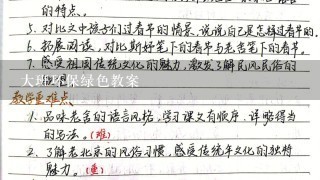 的特点。
5. 对比文中孩子们过春节的情景,说说自己是怎样过春节的。
6. 拓展阅读,对比斯好笔下的春节与老舍笔下的春节。
7. 感受祖国传统文化的魅力,激发了解民风民俗的
大班环保绿色教案
教学重难点
1. 品味老舍的语言风格,学习课文有顺序、详略得当
的写法。(难)
2. 了解老北京的风俗习惯,感受传统年文化的独特
魅力。(重)